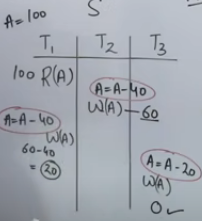 A=100 S
T₁ T₂ T₃
100 R(A)
A=A-40
W(A) — 60
A=A-40
W(A)
60-40
= 20
A=A-20
W(A)
0 ✓